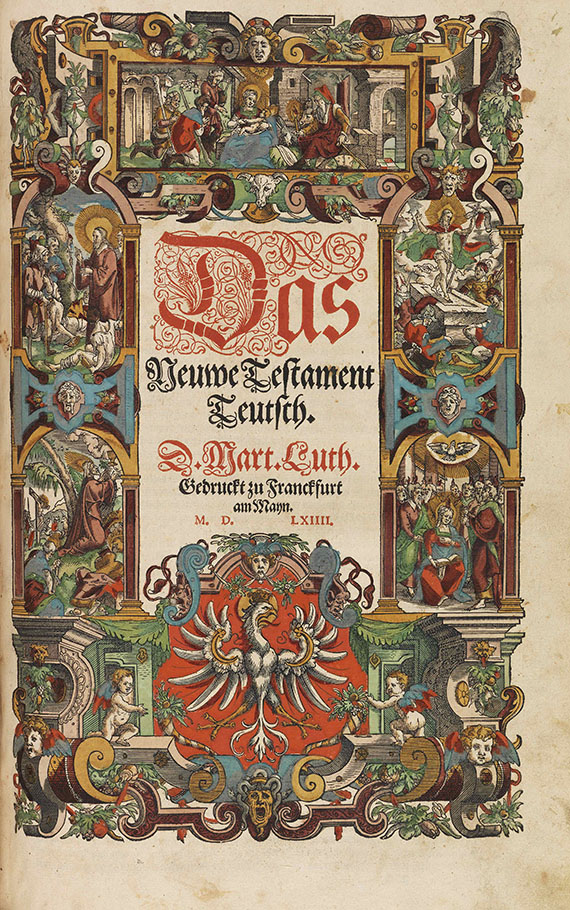 Das
Neuwe Testament
Teutsch.
D. Mart. Luth.
Gedruckt zu Franckfurt
am Mayn.
M. D. LXIIII.